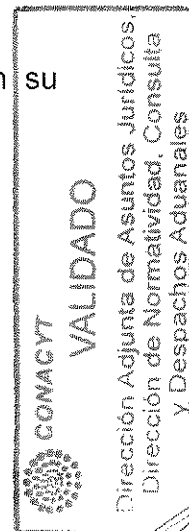 n su
CONACYT
VALIDADO
Dirección Adjunta de Asuntos Jurídicos,
Dirección de Normatividad, Consulta
y Despachos Aduanales